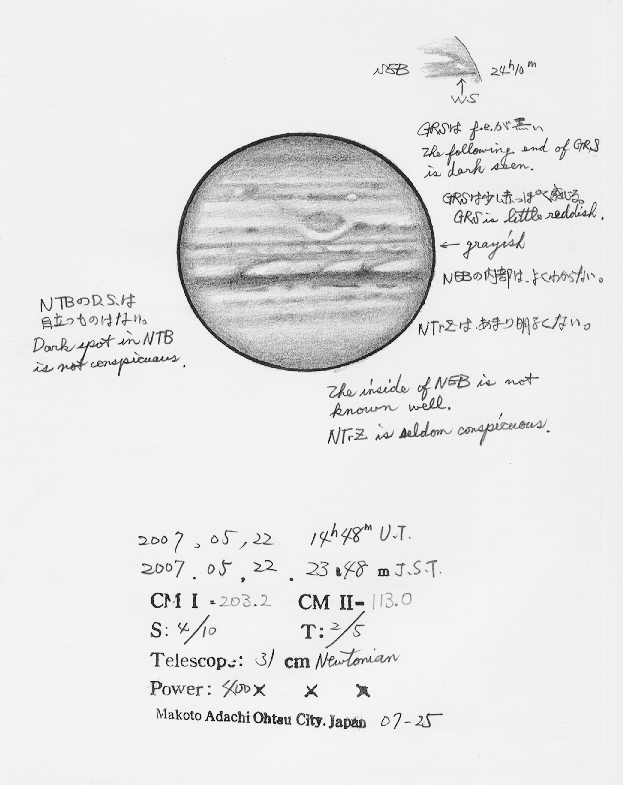 NEB 24ʰ10ᵐ
↑
WS
GRSは f.e.が黒い
The following end of GRS
is dark seen.
GRSは少し赤っぽく感じる。
GRS is little reddish.
← grayish
NEBの内部は、よくわからない。
NTBのD.S.は
目立つものはない。
Dark spot in NTB
is not conspicuous.
NTrZは、あまり明るくない。
The inside of NEB is not
known well.
NTrZ is seldom conspicuous.
2007, 05, 22 14ʰ48ᵐ U.T.
2007. 05, 22. 23:48 m J.S.T.
CM I = 203.2 CM II= 113.0
S: 4/10 T: 2/5
Telescope: 31 cm Newtonian
Power: 400× × ×
Makoto Adachi Ohtsu City. Japan 07-25